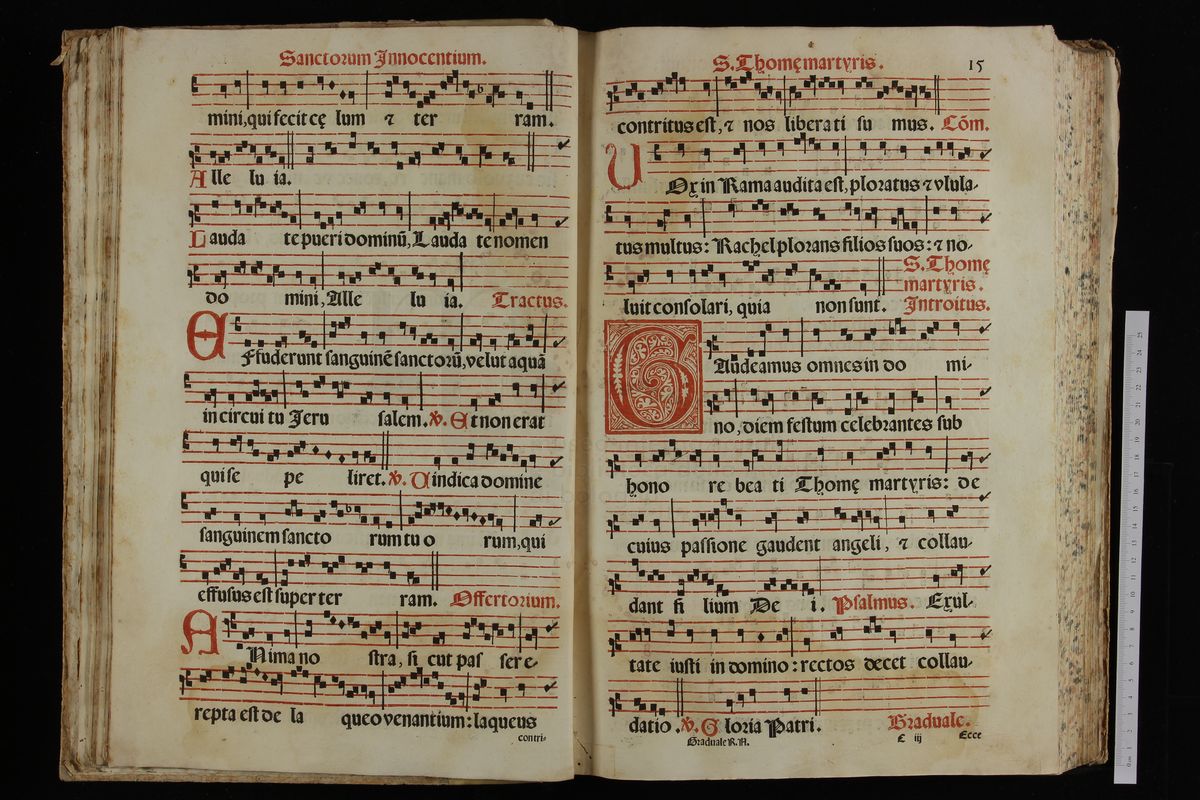 Sanctorum Innocentium.
mini, qui fecit cę lum ⁊ ter ram.
Alle lu ia.
Lauda te pueri dominũ, Lauda te nomen
do mini, Alle lu ia. Tractus.
Effuderunt sanguinẽ sanctorũ, velut aquã
in circui tu Jeru salem. ℣. Et non erat
qui se pe liret. ℣. Uindica domine
sanguinem sancto rum tu o rum, qui
effusus est super ter ram. Offertorium.
ANima no stra, si cut pas ser e-
repta est de la queo venantium: laqueus
contri-
S. Thomę martyris. 15
contritus est, ⁊ nos libera ti su mus. Cõm.
UOx in Rama audita est, ploratus ⁊ vlula-
tus multus: Rachel plorans filios suos: ⁊ no-
luit consolari, quia non sunt.
S. Thomę
martyris.
Introitus.
GAudeamus omnes in do mi-
no, diem festum celebrantes sub
hono re bea ti Thomę martyris: de
cuius passione gaudent angeli, ⁊ collau-
dant fi lium De i. Psalmus. Exul-
tate iusti in domino: rectos decet collau-
datio. ℣. Gloria Patri. Graduale.
Graduale R.A. E iij Ecce
0 cm 1 2 3 4 5 6 7 8 9 10 11 12 13 14 15 16 17 18 19 20 21 22 23 24 25